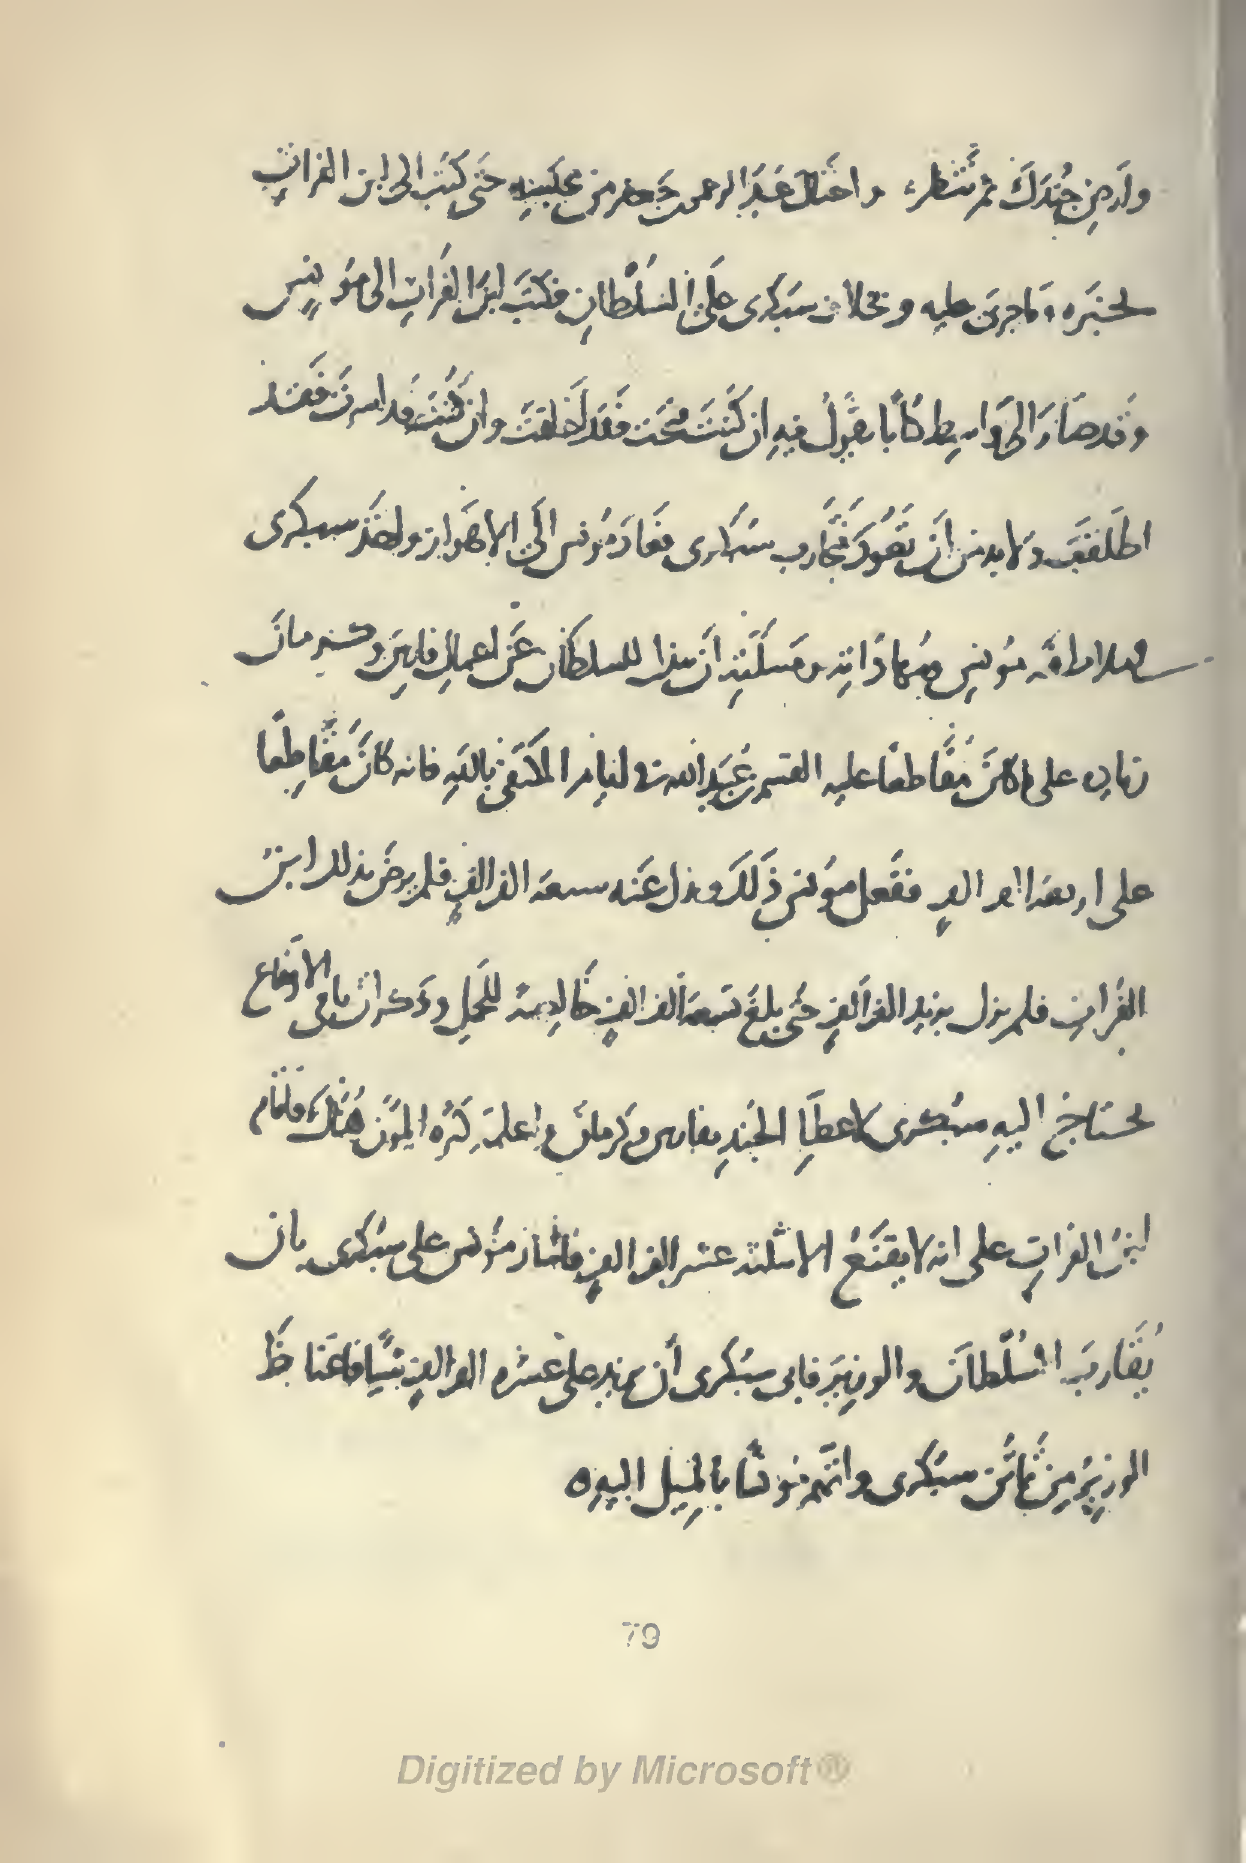 وارض جندك ثم تنتظر واحتال عبد الرحمن بن جعفر من محبسه حتى كتب الى ابن الفرات
بخبره وما جرى عليه وبخلاف سبكرى على السلطان فكتب ابن الفرات الى مونس
وقد صار الى واسط كتابا يقول فيه ان كنت فتحت فقد اغلقت وان كنت قد اسرت فقد
اطلقت ولا بد من ان تعود فتحارب سبكرى فعاد مونس الى الاهواز واخذ سبكرى
فى ملاطفة مونس ومهاداته ومسلته ان يبذل للسلطان عن اعمال فارس وكرمان
زيادة على ما كان مقاطعا عليه القسم بن عبيد الله فى ايام المكتفى بالله فانه كان مقاطعا
على اربعة الف الف ففعل مونس ذلك وبذل عنه سبعة الف الف فلم يرض بذلك ابن
الفرات فلم يزل يزيد الف الف حتى بلغ تسعة الف الف خالصة للحمل وذكر ان باقى الارتفاع
يحتاج اليه سبكرى لاعطا الجند بفارس وكرمان واعلمه كثره المون هناك فاقام
ابن الفرات على انه لا يقنع الا بثلثة عشر الف الف فاشار مونس على سبكرى بان
يقارب السلطان والوزير فابى سبكرى ان يزيد على عشره الف الف شيا فاغتاظ
الوزير من تماتن سبكرى واتهم مونسا بالميل اليه
79
Digitized by Microsoft®